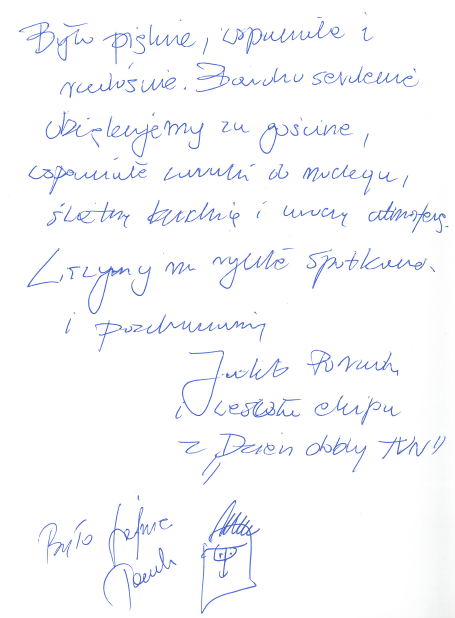 Było pięknie, wspaniale i
radośnie. Bardzo serdecznie
dziękujemy za gościnę,
wspaniałe warunki do noclegu,
świetną kuchnię i uroczą atmosferę.
Liczymy na rychłe spotkanie
i pozdrawiamy
Jakub
i wesoła ekipa
z „Dzień dobry TVN”
Było fajnie